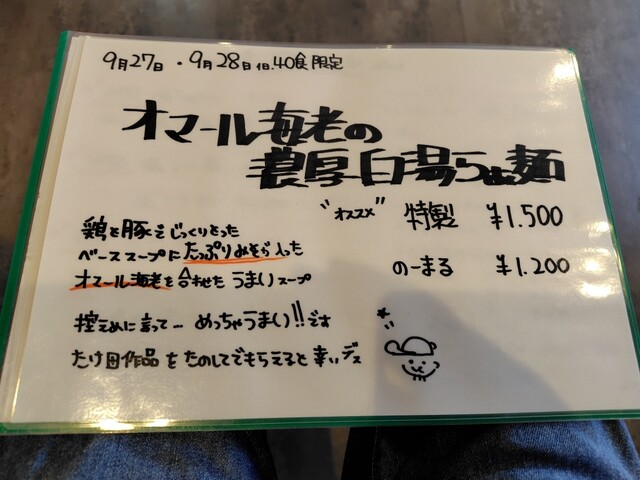 9月27日・9月28日 1日.40食限定
オマール海老の
濃厚白湯らぁ麺
"オススメ" 特製 ¥1.500
のーまる ¥1.200
鶏と豚をじっくりとった
ベーススープにたっぷりみそが入った
オマール海老を合わせたうまりスープ
控えめに言って… めっちゃうまい!!です
たけ田作品をたのしてでもらえると幸いデス